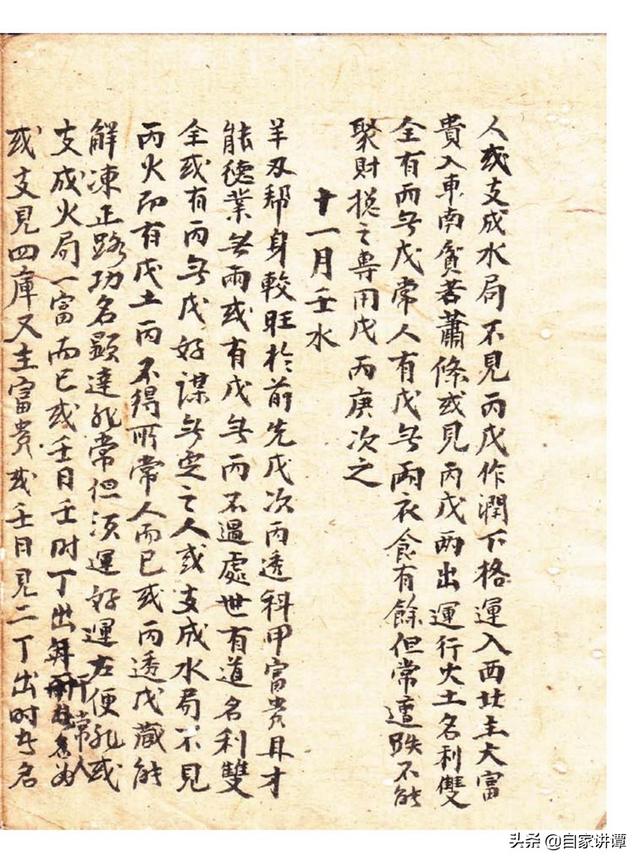 人或支成水局不見丙戊作潤下格運入西北主大富
貴入東南貧苦蕭條或見丙戊兩出運行火土名利雙
全有丙无戊常人有戊无丙衣食有餘但常遭跌不能
聚財捴之專用戊丙庚次之
十一月壬水
羊刃帮身較旺於前先戊次丙透科甲富贵且才
能德業无丙或有戊无丙不過處世有道名利雙
全或有丙无戊好謀无之人或支成水局不見
丙火即有戊土丙不得所常人而已或丙透戊藏能
解凍正路功名顯達非常但須運好運左便非或
支成火局一富而已或壬日壬时丁出
或支見四庫又主富貴或壬日見二丁出时名
头条 @自家讲谭